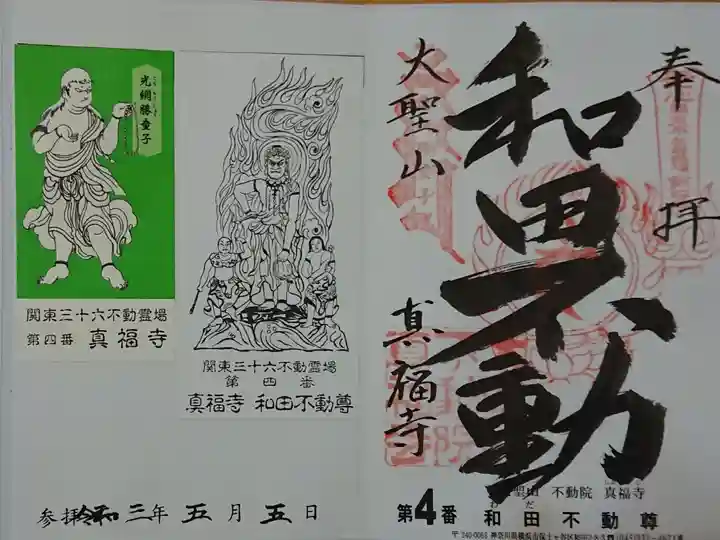 奉拝
和田不動
大聖山
真福寺
聖山 不動院 真福寺
わだ
第4番 和田不動尊
光網勝童子
関東三十六不動霊場
第四番 真福寺
関東三十六不動霊場
第四番
真福寺 和田不動尊
参拝 令和三年 五月五日